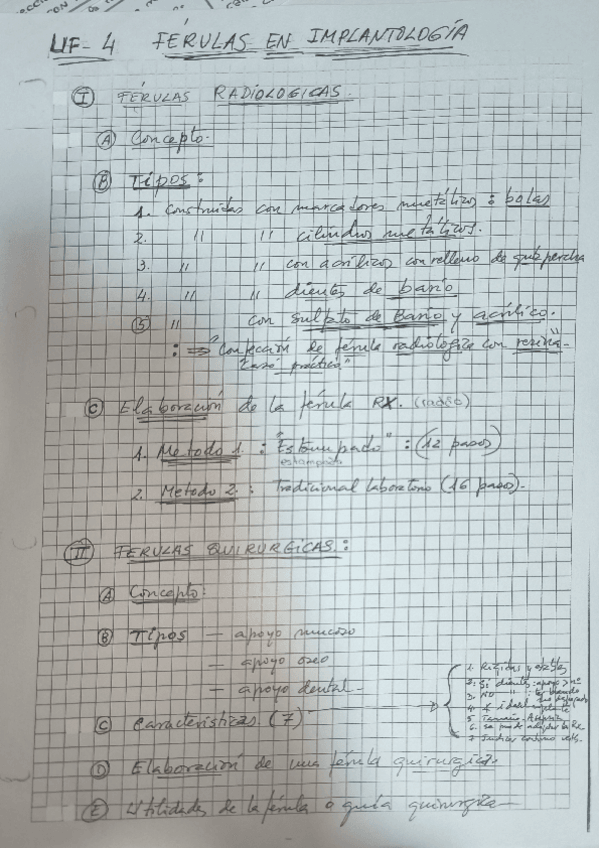 UF-4 FÉRULAS EN IMPLANTOLOGÍA
I FÉRULAS RADIOLOGICAS.
A Concepto.
B Tipos:
1. Construidas con marcadores metálicos: bolas
2. " " cilindros metálicos.
3. " " con acrílicos con relleno de gutapercha
4. " " dientes de bario
5 " con sulfato de Bario y acrílico.
: ⇒ "Confección de férula radiologica con resina"
"caso práctico"
C Elaboración de la férula RX. (radio)
1. Metodo 1. : "Estampado" : (12 pasos)
estampado
2. Metodo 2. : Tradicional laboratorio (16 pasos).
II FERULAS QUIRURGICAS.:
A Concepto:
B Tipos — apoyo mucoso
— apoyo oseo
— apoyo dental
C Caracteristicas. (7)
1. Rigidas y estables
2. Si dientes: apoyo > nº
3. NO " :
4.
5
6. se puede adaptar la Rx
7
D Elaboración de una férula quirurgica.
E Utilidades de la férula o guía quirurgica